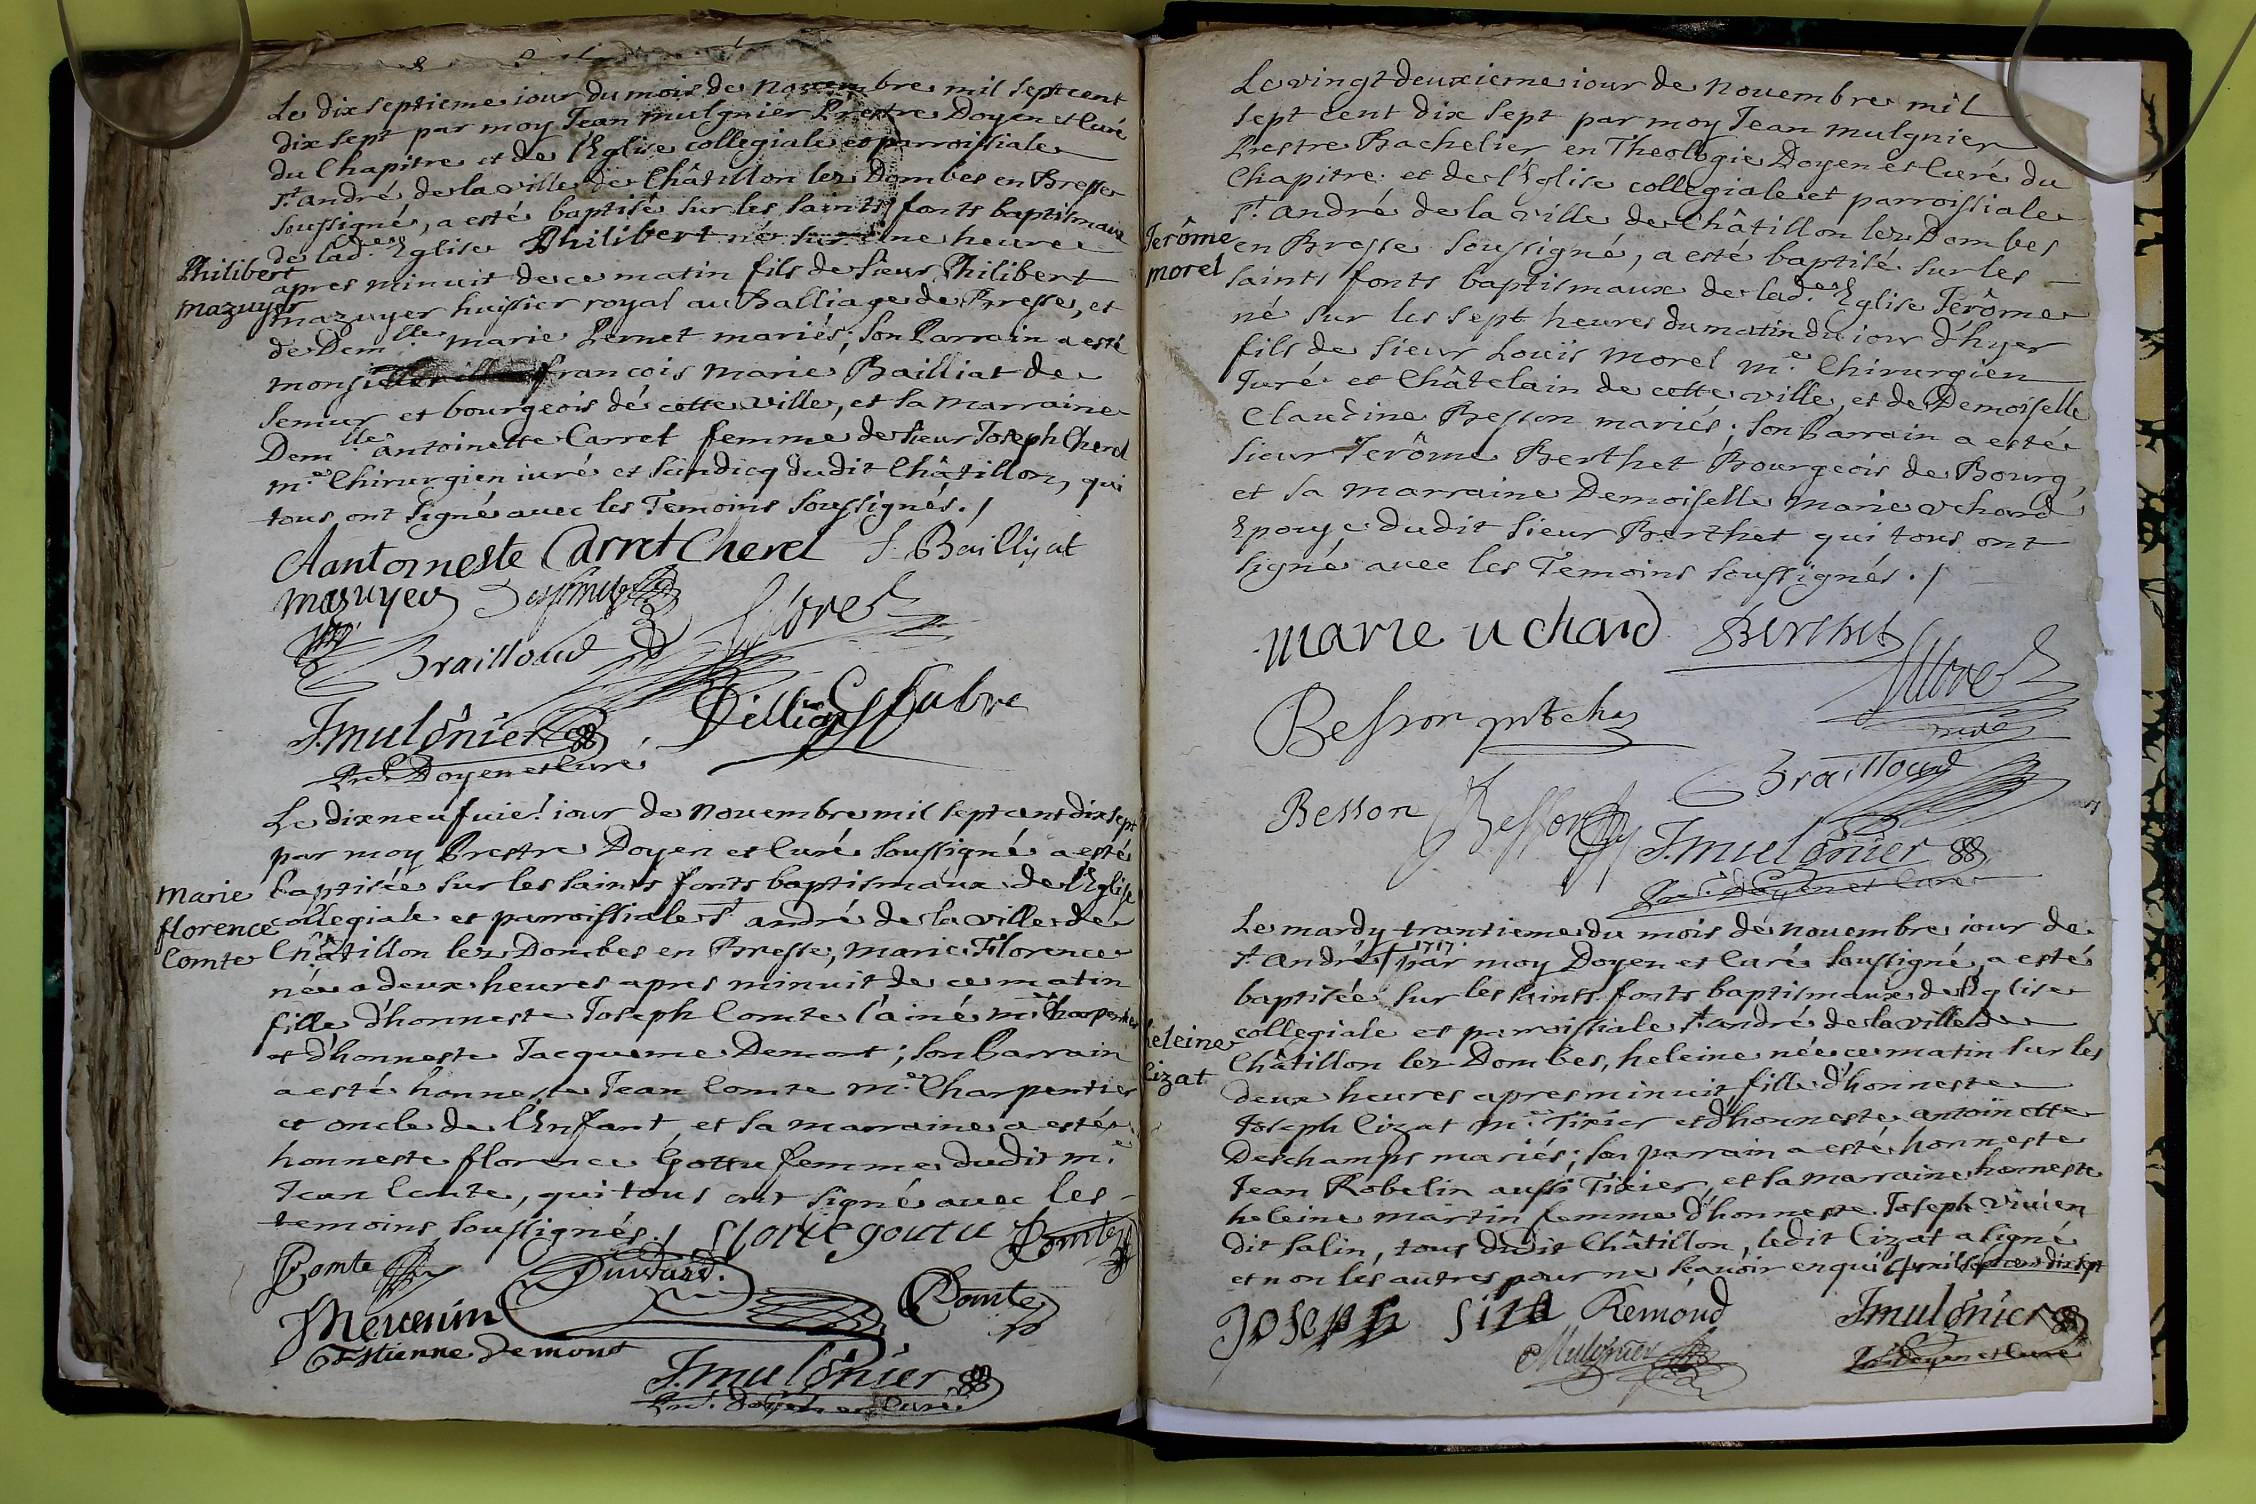 Le dix septieme iour du mois de nouembre mil sept cent
dix sept par moy Jean mulgnier Prestre Doyen et Curé
du Chapitre et de l'Eglise collegiale et parroissiale
St. andré de la ville de Châtillon lez Dombes en Bresse
soussigné, a esté baptisé sur les saints fonts baptismaux
de lad.e Eglise Philibert né sur une heure
Philibert
mazuyer
apres minuit de ce matin fils de sieur Philibert
mazuyer huissier royal au Balliage de Bresse, et
de Dem.lle marie Pernet mariés; son Parrain a esté
monsieur francois marie Bailliat de
semur et bourgeois de cette ville, et sa marraine
Dem.lle antoinette Carret femme de sieur Joseph Cherel
m.e Chirurgien iuré et Sindicq dudit Châtillon, qui
tous ont signé auec les Temoins soussignés. /
Aantoineste Carret Cherel f. Baillyat
mazuyer
Brailloud Morel
J. mulgnier
Pre. Doyen et Curé
Le dixneufuie. iour de nouembre mil sept cent dix sept
par moy Prestre Doyen et Curé soussigné a esté
Marie
florence
Comte
baptisée sur les saints fonts baptismaux de l'Eglise
collegiale et parroissiale St andré de la ville de
Châtillon lez Dombes en Bresse; marie Florence
née a deux heures apres minuit de ce matin
fille d'honneste Joseph Comte l'ainé m.e Charpentier
et d'honneste Jacqueme Demont; son Parrain
a esté honneste Jean Comte m.e Charpentier
et oncle de l'Enfant, et sa marraine a esté
honneste florence Gottu femme dudit m.e
Jean Comte, qui tous ont signé auec les
temoins soussignés. / florie goutu Comte
Comte
Comte
Estienne Demont
J. mulgnier
Pre. Doyen et Curé
Le vingt deuxieme iour de nouembre mil
sept cent dix sept par moy Jean mulgnier
Prestre Bachelier en Theologie Doyen et Curé du
Chapitre et de l'Eglise collegiale et parroissiale
St. andré de la ville de Châtillon lez Dombes
Jerôme
morel
en Bresse soussigné, a esté baptisé sur les
saints fonts baptismaux de lad.e Eglise Jerôme
né sur les sept heures du matin du iour d'hyer
fils de sieur Louis morel m.e Chirurgien
Juré et Châtelain de cette ville, et de Demoiselle
Claudine Besson mariés; son Parrain a esté
sieur Jerôme Berthet Bourgeois de Bourg,
et sa marraine Demoiselle marie Vchard
Epouse dudit sieur Berthet qui tous ont
signé auec les Temoins soussignés. /
marie uchard Berthet
Morel
Besson
Brailloud
Besson Besson
J. mulgnier
Pre. Doyen et Curé
Le mardy trantieme du mois de nouembre iour de
St. André 1717. par moy Doyen et Curé soussigné, a esté
baptisée sur les saints fonts baptismaux de l'Eglise
heleine
Cizat
collegiale et parroissiale St. andré de la ville de
Châtillon lez Dombes, heleine née ce matin sur les
deux heures apres minuit, fille d'honneste
Joseph Cizat m.e Tixier et d'honneste antoinette
Deschamps mariés; son parrain a esté honneste
Jean Robelin aussi Tixier, et sa marraine honneste
heleine martin femme d'honneste Joseph Vivien
dit salin, tous dudit Châtillon, ledit Cizat a signé
et non les autres pour ne sçauoir enquis
Joseph siza Remond J. mulgnier
Mulgnier Pre. Doyen et Curé